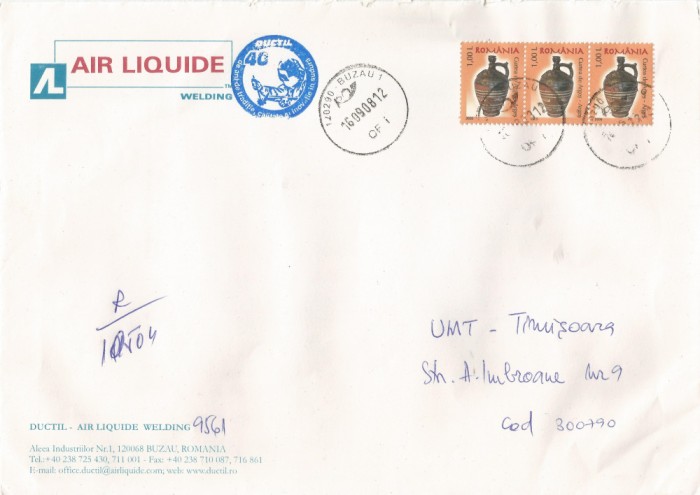 AIR LIQUIDE
TM
WELDING
DUCTIL
40
de ani de tradiție, calitate și inovație în sudură
120290 - BUZAU 1
16090812
OF 1
ROMÂNIA
1,00 L
ROMÂNIA
1,00 L
ROMÂNIA
1,00 L
BUZAU
OF 1
OF 1
R
UMT - Timișoara
Str. A. Imbroane Nr 9
Cod 300790
DUCTIL - AIR LIQUIDE WELDING 9561
Aleea Industriilor Nr.1, 120068 BUZAU, ROMANIA
Tel.:+40 238 725 430, 711 001 - Fax: +40 238 710 087, 716 861
E-mail: office.ductil@airliquide.com; web: www.ductil.ro